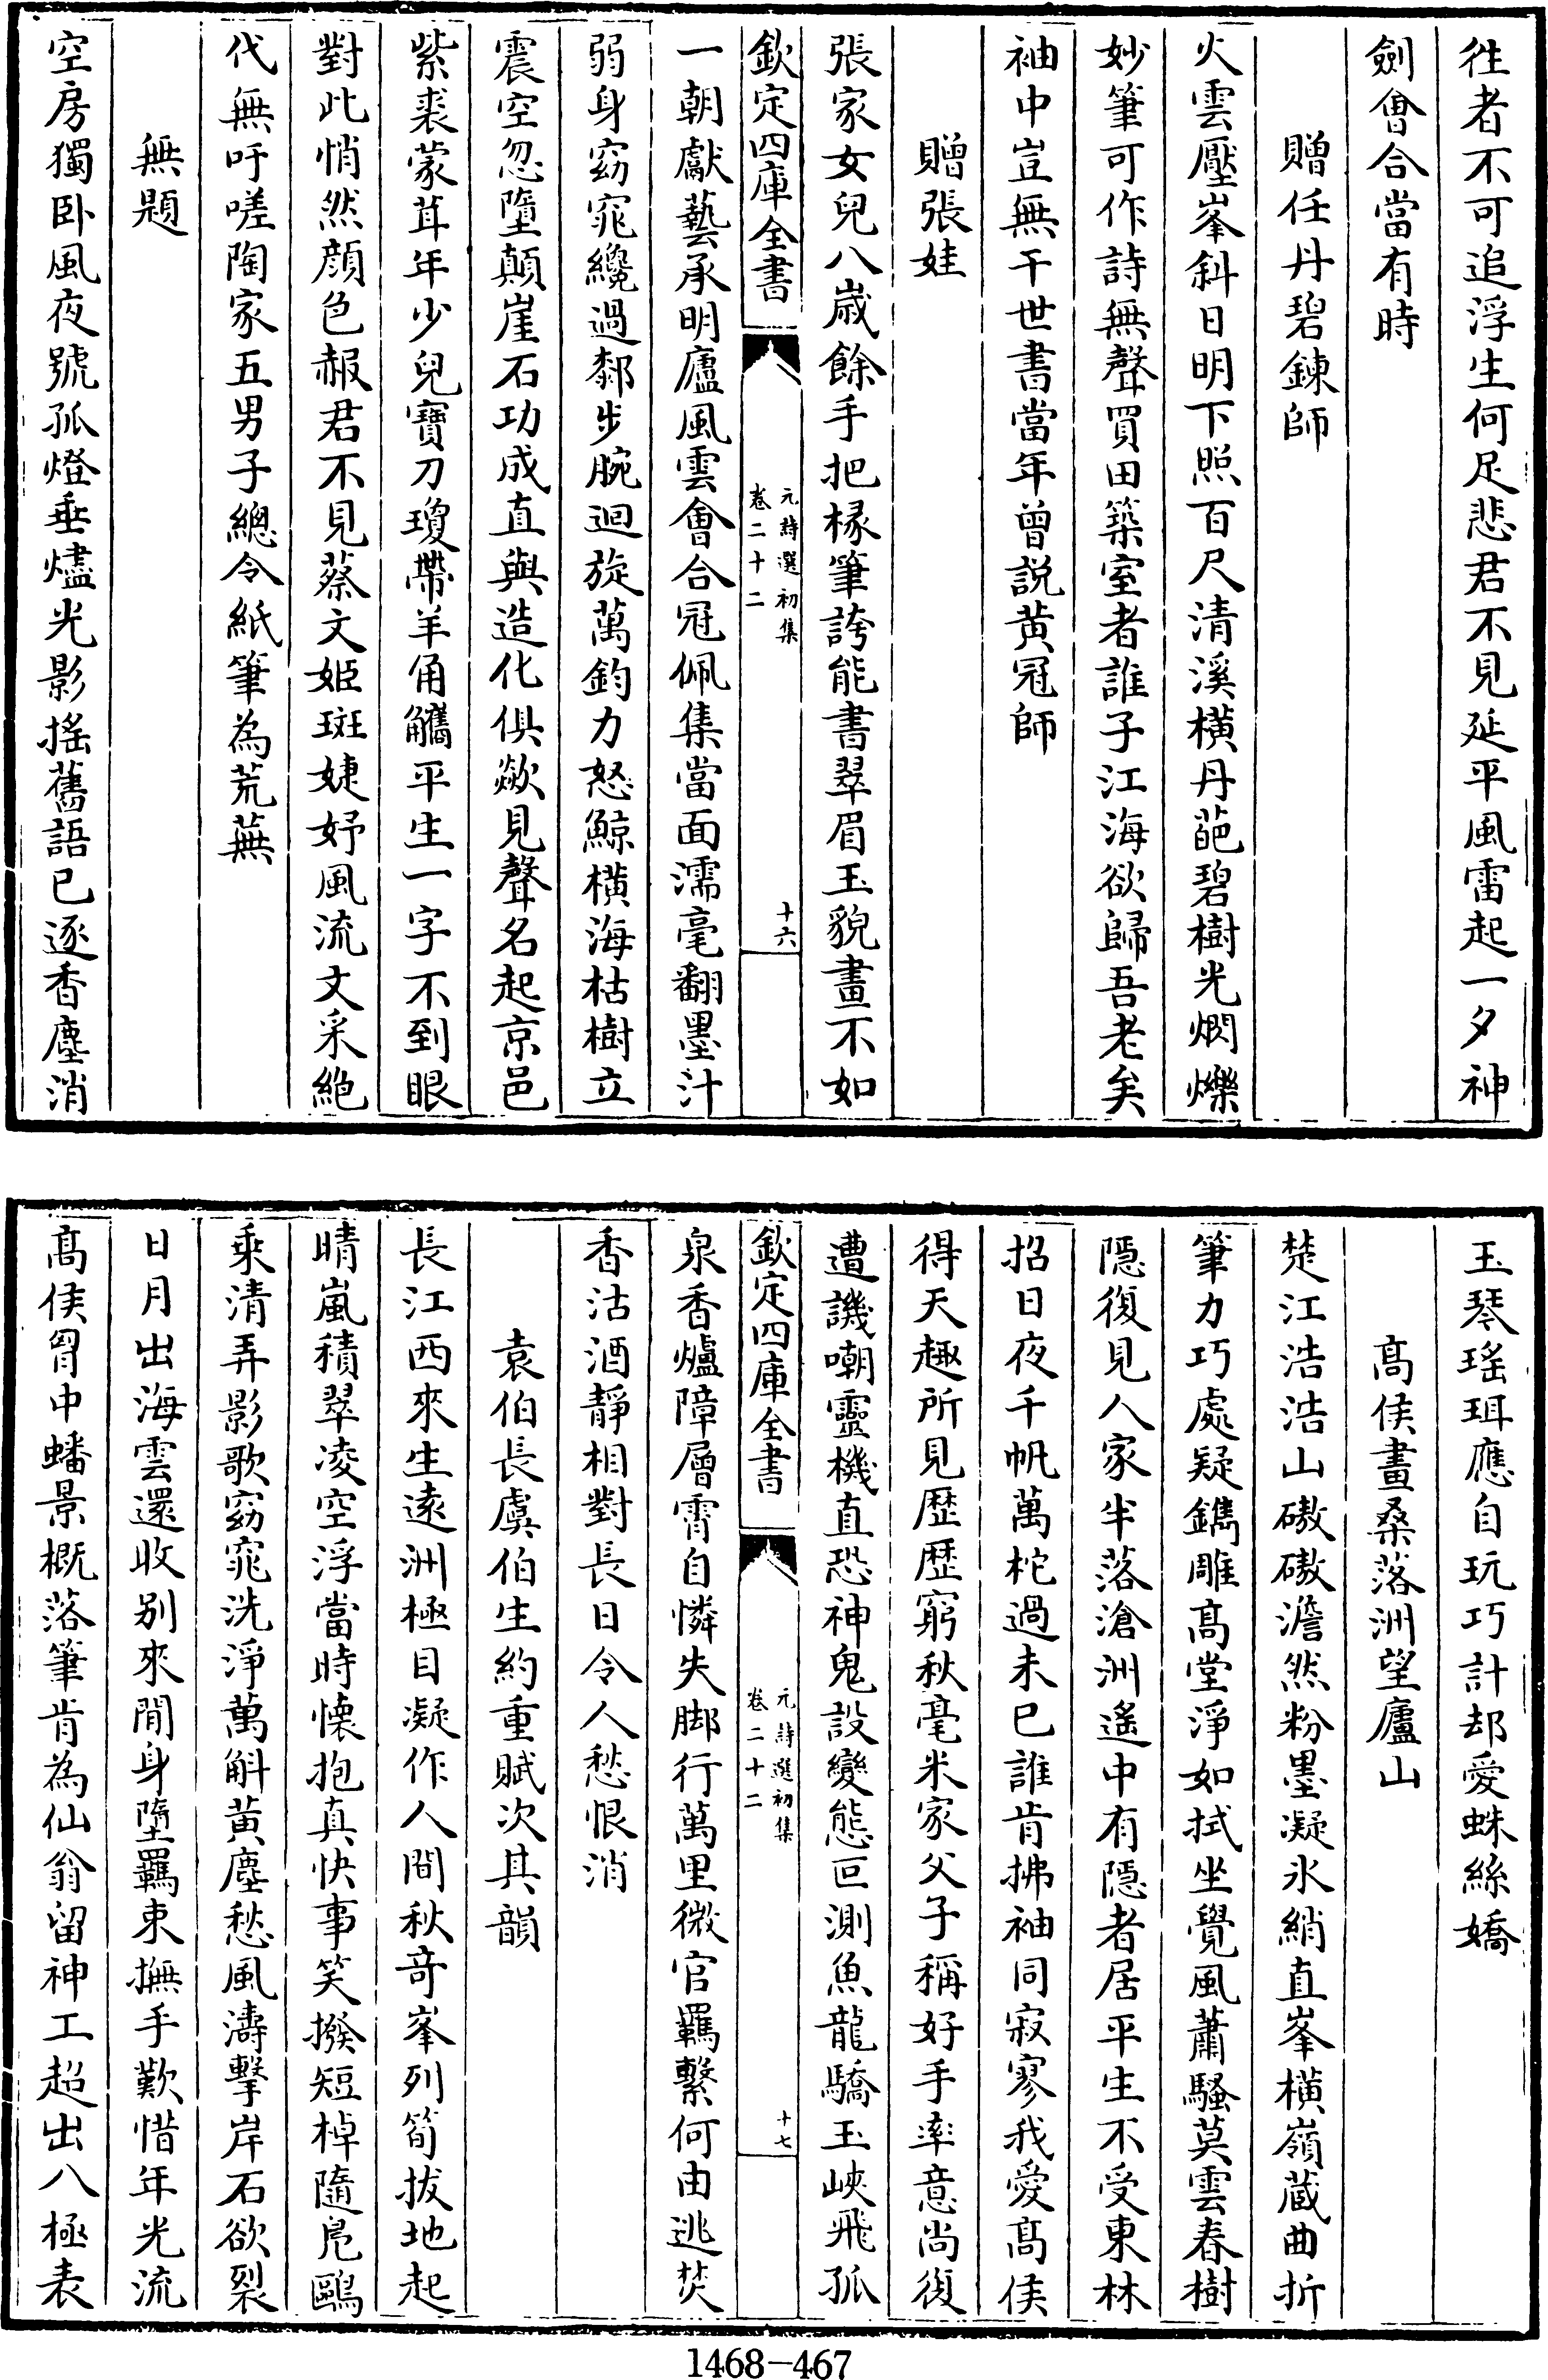 徃者不可追浮生何足悲君不見延平風雷起一夕神
劍會合當有時
贈任丹碧鍊師
火雲壓峯斜日明下照百尺清溪橫丹葩碧樹光燜爍
妙筆可作詩無聲買田築室者誰子江海欲歸吾老矣
袖中豈無干世書當年曾説黄冠師
贈張娃
張家女兒八歳餘手把椽筆誇能書翠眉玉貌畫不如
欽定四庫全書
元詩選初集
卷二十二
十六
一朝獻藝承明廬風雲會合冠佩集當面濡毫翻墨汁
弱身窈窕纔過鄰步腕迴旋萬鈞力怒鯨橫海枯樹立
震空忽墮顛崖石功成直與造化俱歘見聲名起京邑
紫裘蒙茸年少兒寶刀瓊帶羊角觿平生一字不到眼
對此悄然顔色赧君不見蔡文姬斑婕妤風流文采絶
代無吁嗟陶家五男子總令紙筆為荒蕪
無題
空房獨卧風夜號孤燈垂燼光影搖舊語已逐香塵消
玉琴瑤珥應自玩巧計却愛蛛絲嬌
髙侯畫桑落洲望廬山
楚江浩浩山磝磝澹然粉墨凝氷綃直峯橫嶺蔵曲折
筆力巧處疑鐫雕髙堂淨如拭坐覺風蕭騷莫雲春樹
隱復見人家半落滄洲遙中有隱者居平生不受東林
招日夜千帆萬柁過未已誰肯拂袖同寂寥我愛髙侯
得天趣所見歴歴窮秋毫米家父子稱好手率意尚復
遭譏嘲靈機直恐神鬼設變態叵測魚龍驕玉峽飛孤
欽定四庫全書
元詩選初集
卷二十二
十七
泉香爐障層霄自憐失脚行萬里微官羈繫何由逃焚
香沽酒靜相對長日令人愁恨消
袁伯長虞伯生約重賦次其韻
長江西來生遠洲極目凝作人間秋竒峯列筍拔地起
晴嵐積翠凌空浮當時懐抱真快事笑撥短棹隨鳬鷗
乘清弄影歌窈窕洗淨萬斛黄塵愁風濤擊岸石欲裂
日月出海雲還收别來閒身墮羈束撫手歎惜年光流
髙侯胷中蟠景概落筆肯為仙翁留神工超出八極表
1468-467